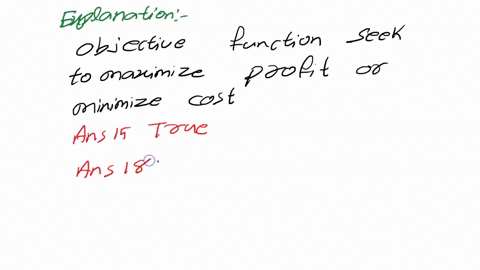 Explanation:-
objective function seek
to maximize profit or
minimize cost
Ans 15 True
Ans 18